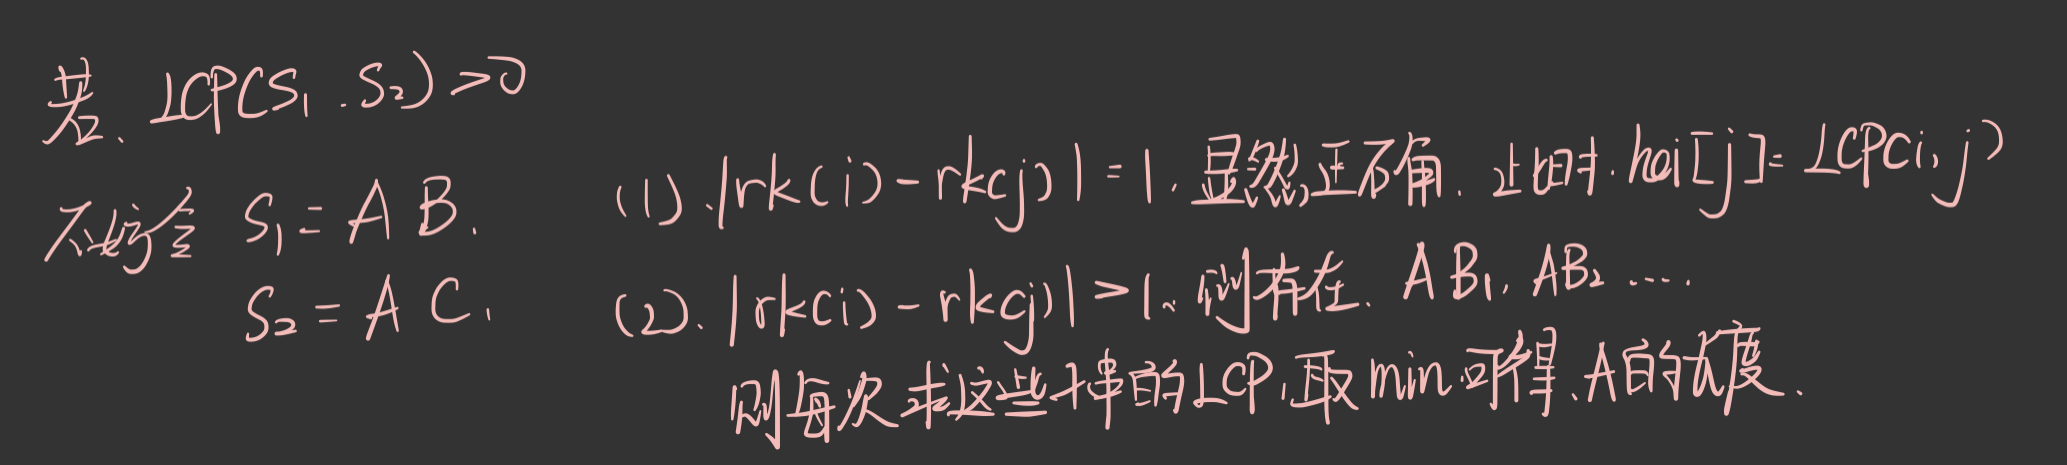 若、LCP(S₁.S₂)>0
不妨令 S₁=AB.
S₂=AC.
(1).|rk(i)-rk(j)|=1.显然正确.此时.hei[j]=LCP(i,j)
(2).|rk(i)-rk(j)|>1、则存在.AB₁,AB₂….
则每次求这些串的LCP,取min.可得、A的长度.